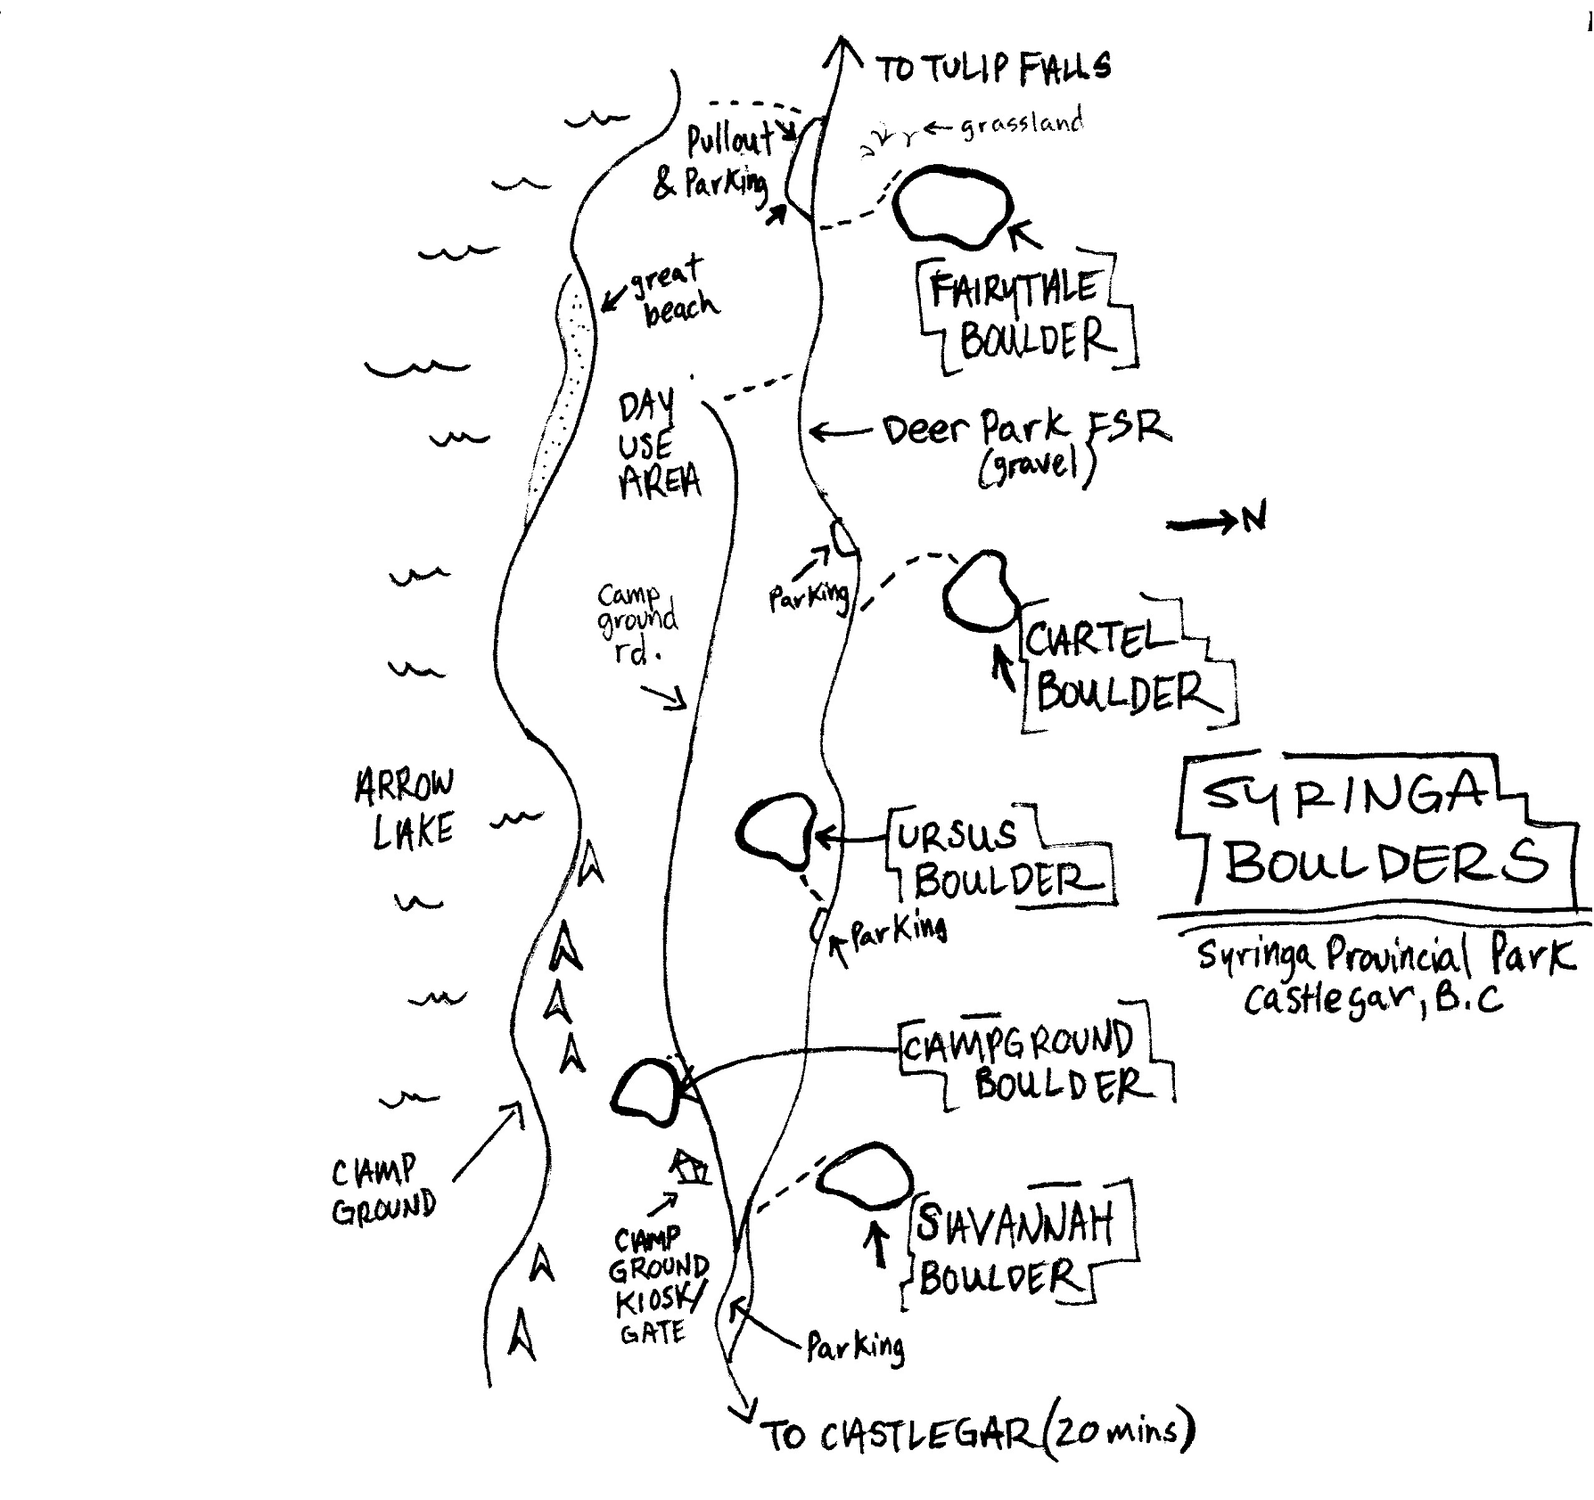 TO TULIP FALLS
grassland
Pullout
& Parking
FAIRYTALE
BOULDER
great
beach
DAY
USE
AREA
Deer Park FSR
(gravel)
N
Parking
Camp
ground
rd.
CARTEL
BOULDER
ARROW
LAKE
URSUS
BOULDER
Parking
SYRINGA
BOULDERS
Syringa Provincial Park
Castlegar, B.C
CAMPGROUND
BOULDER
CAMP
GROUND
CAMP
GROUND
KIOSK/
GATE
SAVANNAH
BOULDER
Parking
TO CASTLEGAR (20 mins)